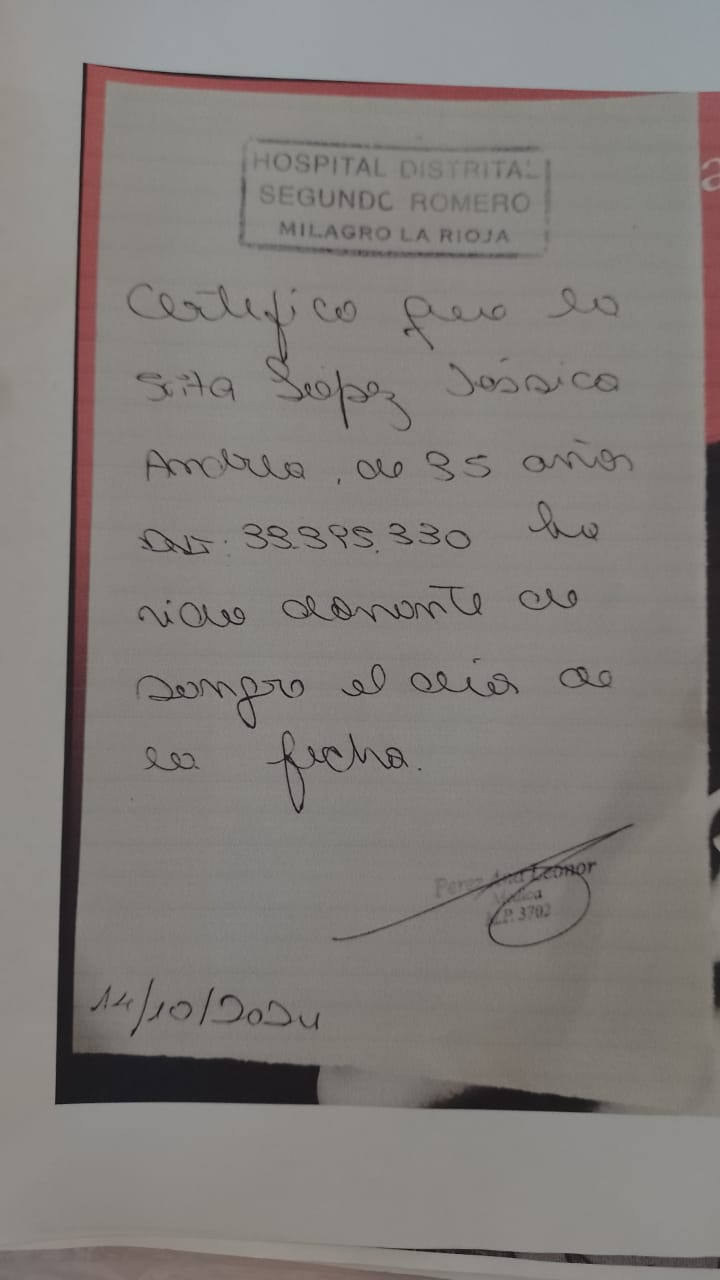 HOSPITAL DISTRITAL
SEGUNDO ROMERO
MILAGRO LA RIOJA
Certifico que la
Srita López Jéssica
Andrea, de 35 años
DNI: 38.395.330 ha
sido donante de
sangre el día de
la fecha.
Perez Ana Leonor
Médica
M.P. 3702
14/10/2024